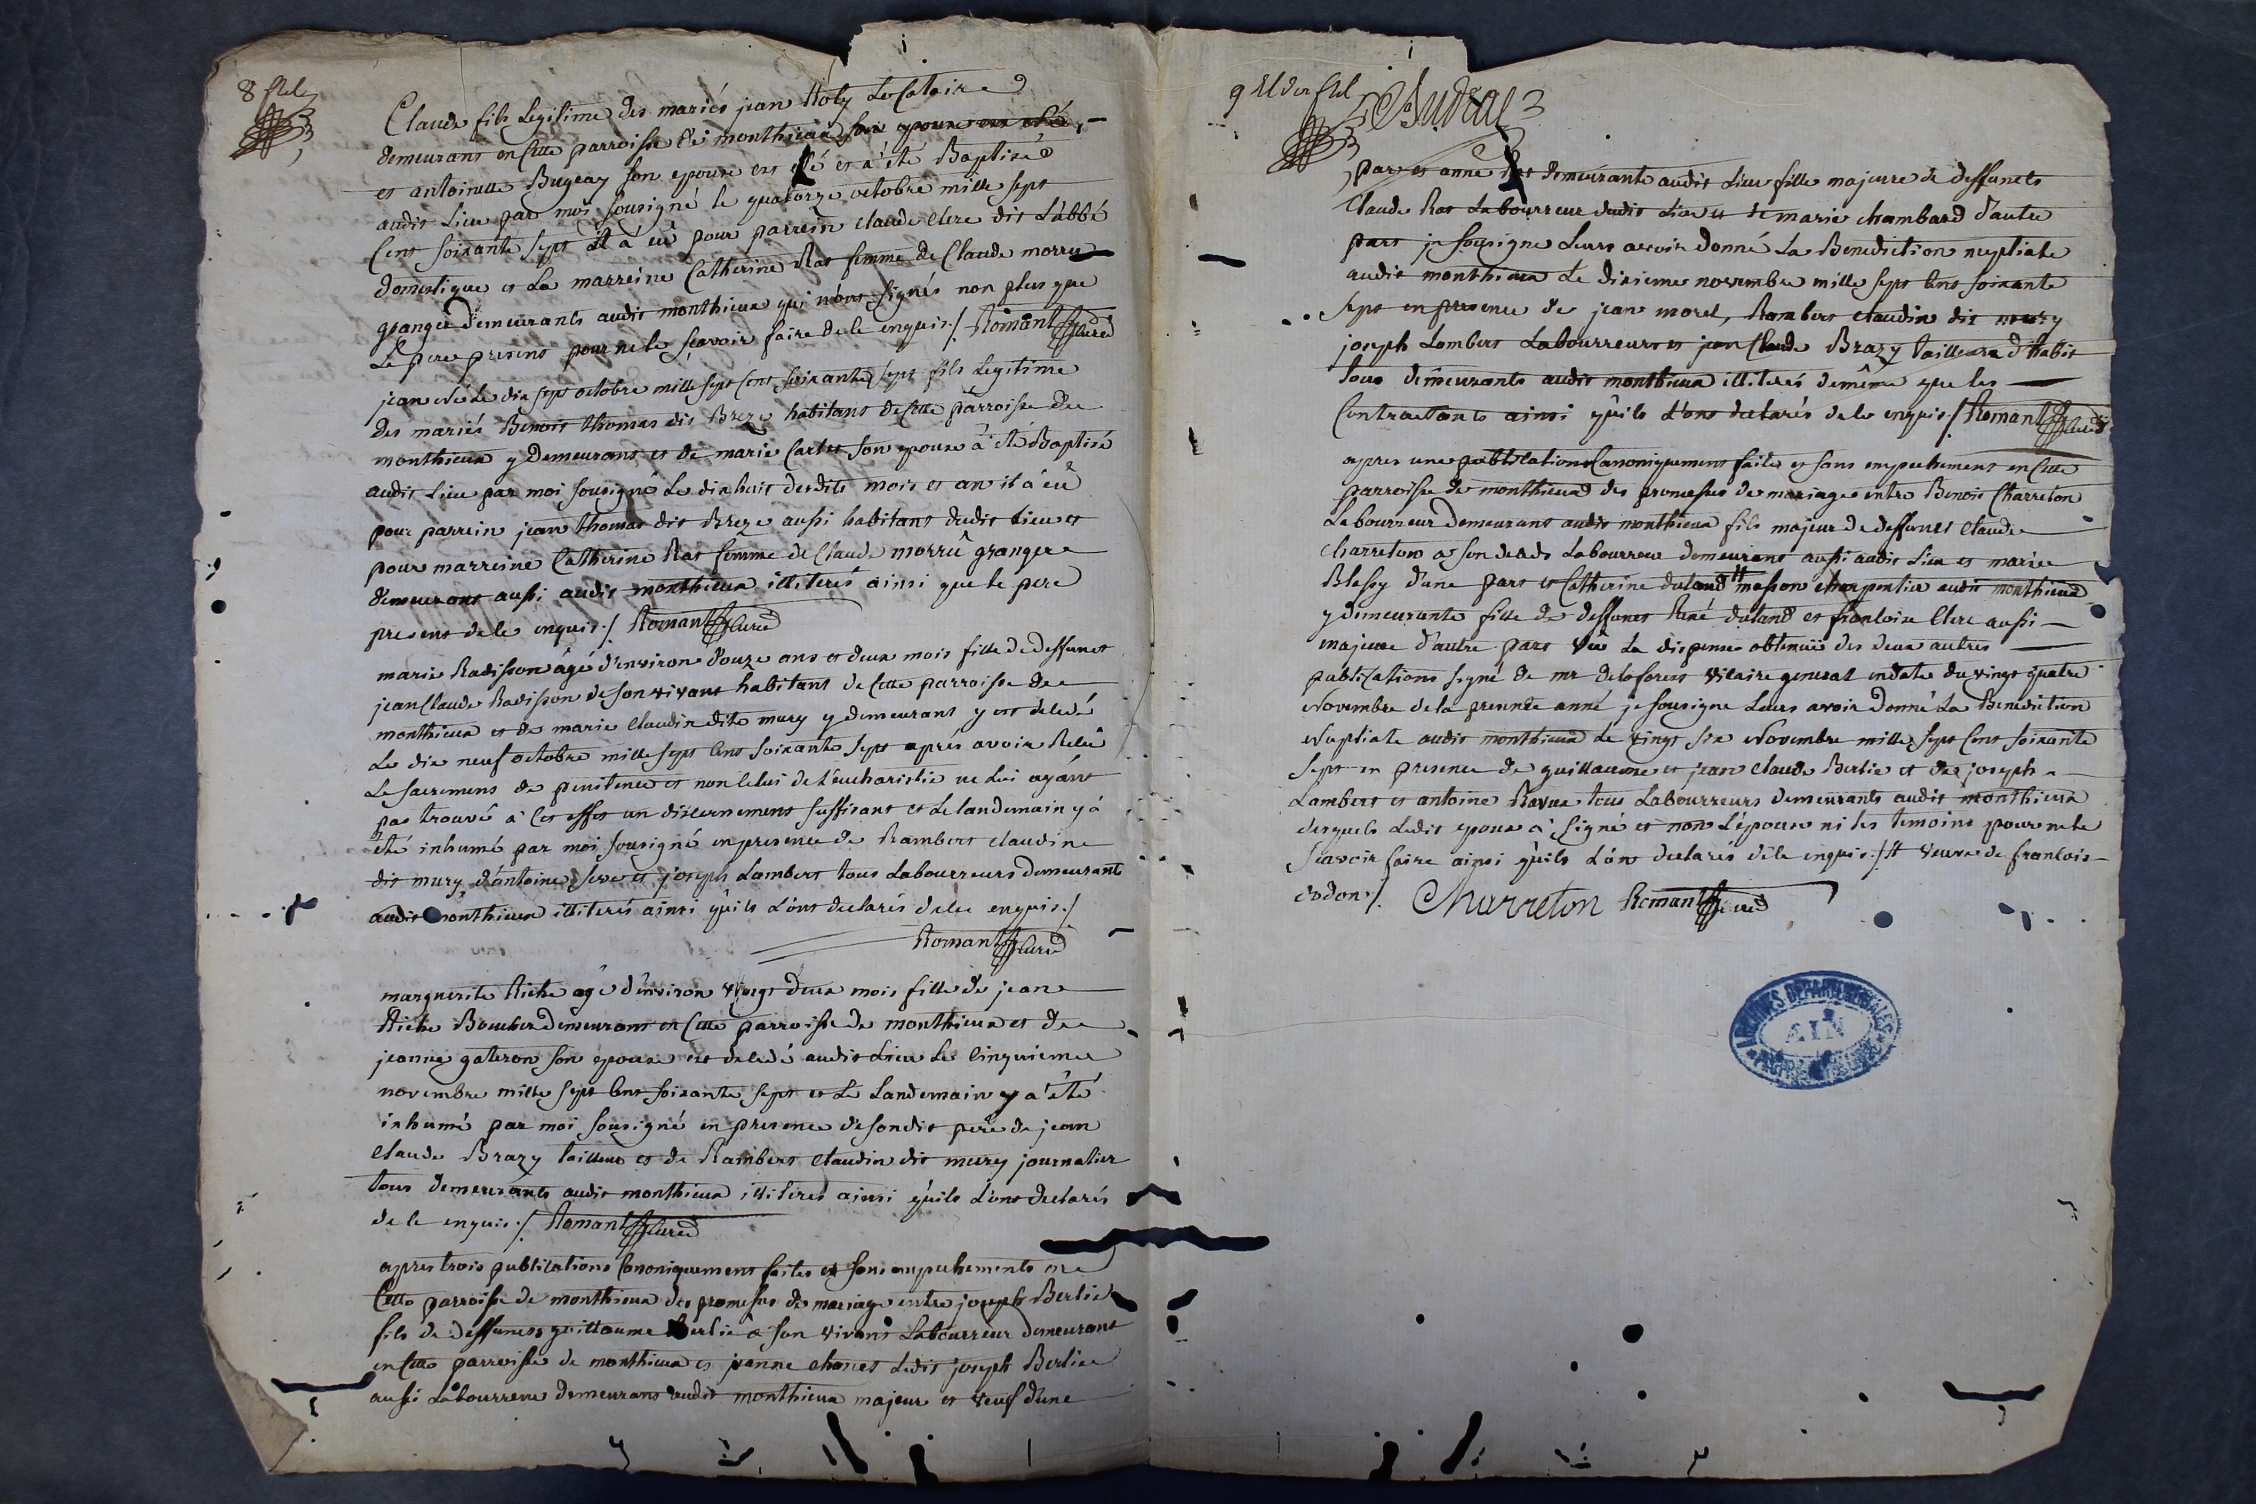 8
Claude fils Legitime des mariés jean Holy Locataire
demeurans en Cette parroisse de monthieux
et antoinette Bugeay son epouse est né et a été Baptisé
audit Lieu par moi sousigné le quatorze octobre mille sept
Cent soixante sept il à eû pour parrein claude Clerc dit L'abbé
domestique et La marreine Catherine Ras femme de Claude morru
granger demeurants audit monthieux qui n'ont signés non plus que
Le pere present pour ne le scavoir faire de le enquis ./. Romant Curé
jean né Le dix sept octobre mille sept Cent soixante sept fils Legitime
des mariés Benoit thomas dit Breze habitant de Cette parroisse de
monthieux y demeurant et de marie Cartet son epouse à été Baptisé
audit Lieu par moi sousigné Le dix huit desdits mois et an il à eû
pour parrein jean thomas dit Breze aussi habitant dudit Lieu et
pour marreine Catherine Ras femme de Claude morrû granger
demeurant aussi audit monthieux illiterés ainsi que le pere
present de le enquis ./. Romant Curé
marie Radisson âgé d'environ douze ans et deux mois fille de deffunct
jean Claude Radisson de son vivant habitant de Cette parroisse de
monthieux et de marie Claudin dite mury y demeurant y est decedé
Le dix neuf octobre mille sept Cent soixante sept aprés avoir Recû
Le sacrement de penitence et non Celui de L'eucharistie ne Lui ayant
pas trouvé à Cet effet un discernement suffisant et Le landemain y à
été inhumé par moi sousigné en presence de Rambert claudin
dit mury, d'antoine seve et joseph Lambert tous Labourreurs demeurant
audit monthieux illiterés ainsi qu'ils L'ont declarés de le enquis ./.
Romant Curé
marguerite Riche agé d'environ vingt deux mois fille de jean
Riche Boucher demeurant en Cette parroisse de monthieux et de
jeanne gateron son epouse est decedé audit Lieu Le Cinquieme
novembre mille sept Cent soixante sept et Le Landemain y a été
inhumé par moi sousigné en presence de sondit pere de jean
Claude Brazy tailleur et de Rambert Claudin dit mury journalier
tous demeurants audit monthieux illiterés ainsi qu'ils L'ont declarés
de le enquis ./. Romant Curé
apres trois publications Canoniquement faites et sans empechements en
Cette parroisse de monthieux des promesses de mariage entre joseph Berlie
fils de deffunct guillaume Berlie a son vivant Labourreur demeurant
en Cette parroisse de monthieux et jeanne Ledit joseph Berlie
aussi Labourreur demeurant audit monthieux majeur et veuf d'une
9
part et anne Ras demeurante audit Lieu fille majeure de deffuncts
Claude Ras Labourreur dudit Lieu et de marie chambard d'autre
part je sousigne Leurs avoir donné La Benediction nuptiale
audit monthieux Le dixieme novembre mille sept Cent soixante
sept en presence de jean morel, Rambert claudin dit mury
joseph Lambert Labourreurs et jean Claude Brazy tailleur d'habit
tous demeurants audit monthieux illiterés de même que les
Contractants ainsi qu'ils L'ont declarés de le enquis ./. Romant Curé
apres une publication Canoniquement faite et sans empechement en Cette
parroisse de monthieux des promesses de mariage entre Benoit Charreton
Labourreur demeurant audit monthieux fils majeur de deffunct Claude
Charreton a son deads Labourreur demeurant aussi audit Lieu et marie
Blassy d'une part et Catherine duland # masson charpentier audit monthieux
y demeurante fille de deffunct René duland et francoise Clerc aussi
majeure d'autre part vû La dispense obtenuë des deux autres
publications signé de mr delaforest vicaire general en date du vingt quatre
Novembre de la presente anné je sousigne Leurs avoir donné La Benediction
Nuptiale audit monthieux Le vingt six Novembre mille sept Cent soixante
sept en presence de guillaume et jean claude Berlie et de joseph
Lambert et antoine Ravue tous Labourreurs demeurants audit monthieux
desquels Ledit epoux à signé et non L'epouse ni les temoins pour ne le
scavoir faire ainsi qu'ils L'ont declarés de le enquis ./. # veuve de francois
dodon ./. Charreton Romant Curé
ARCHIVES DÉPARTEMENTALES
AIN